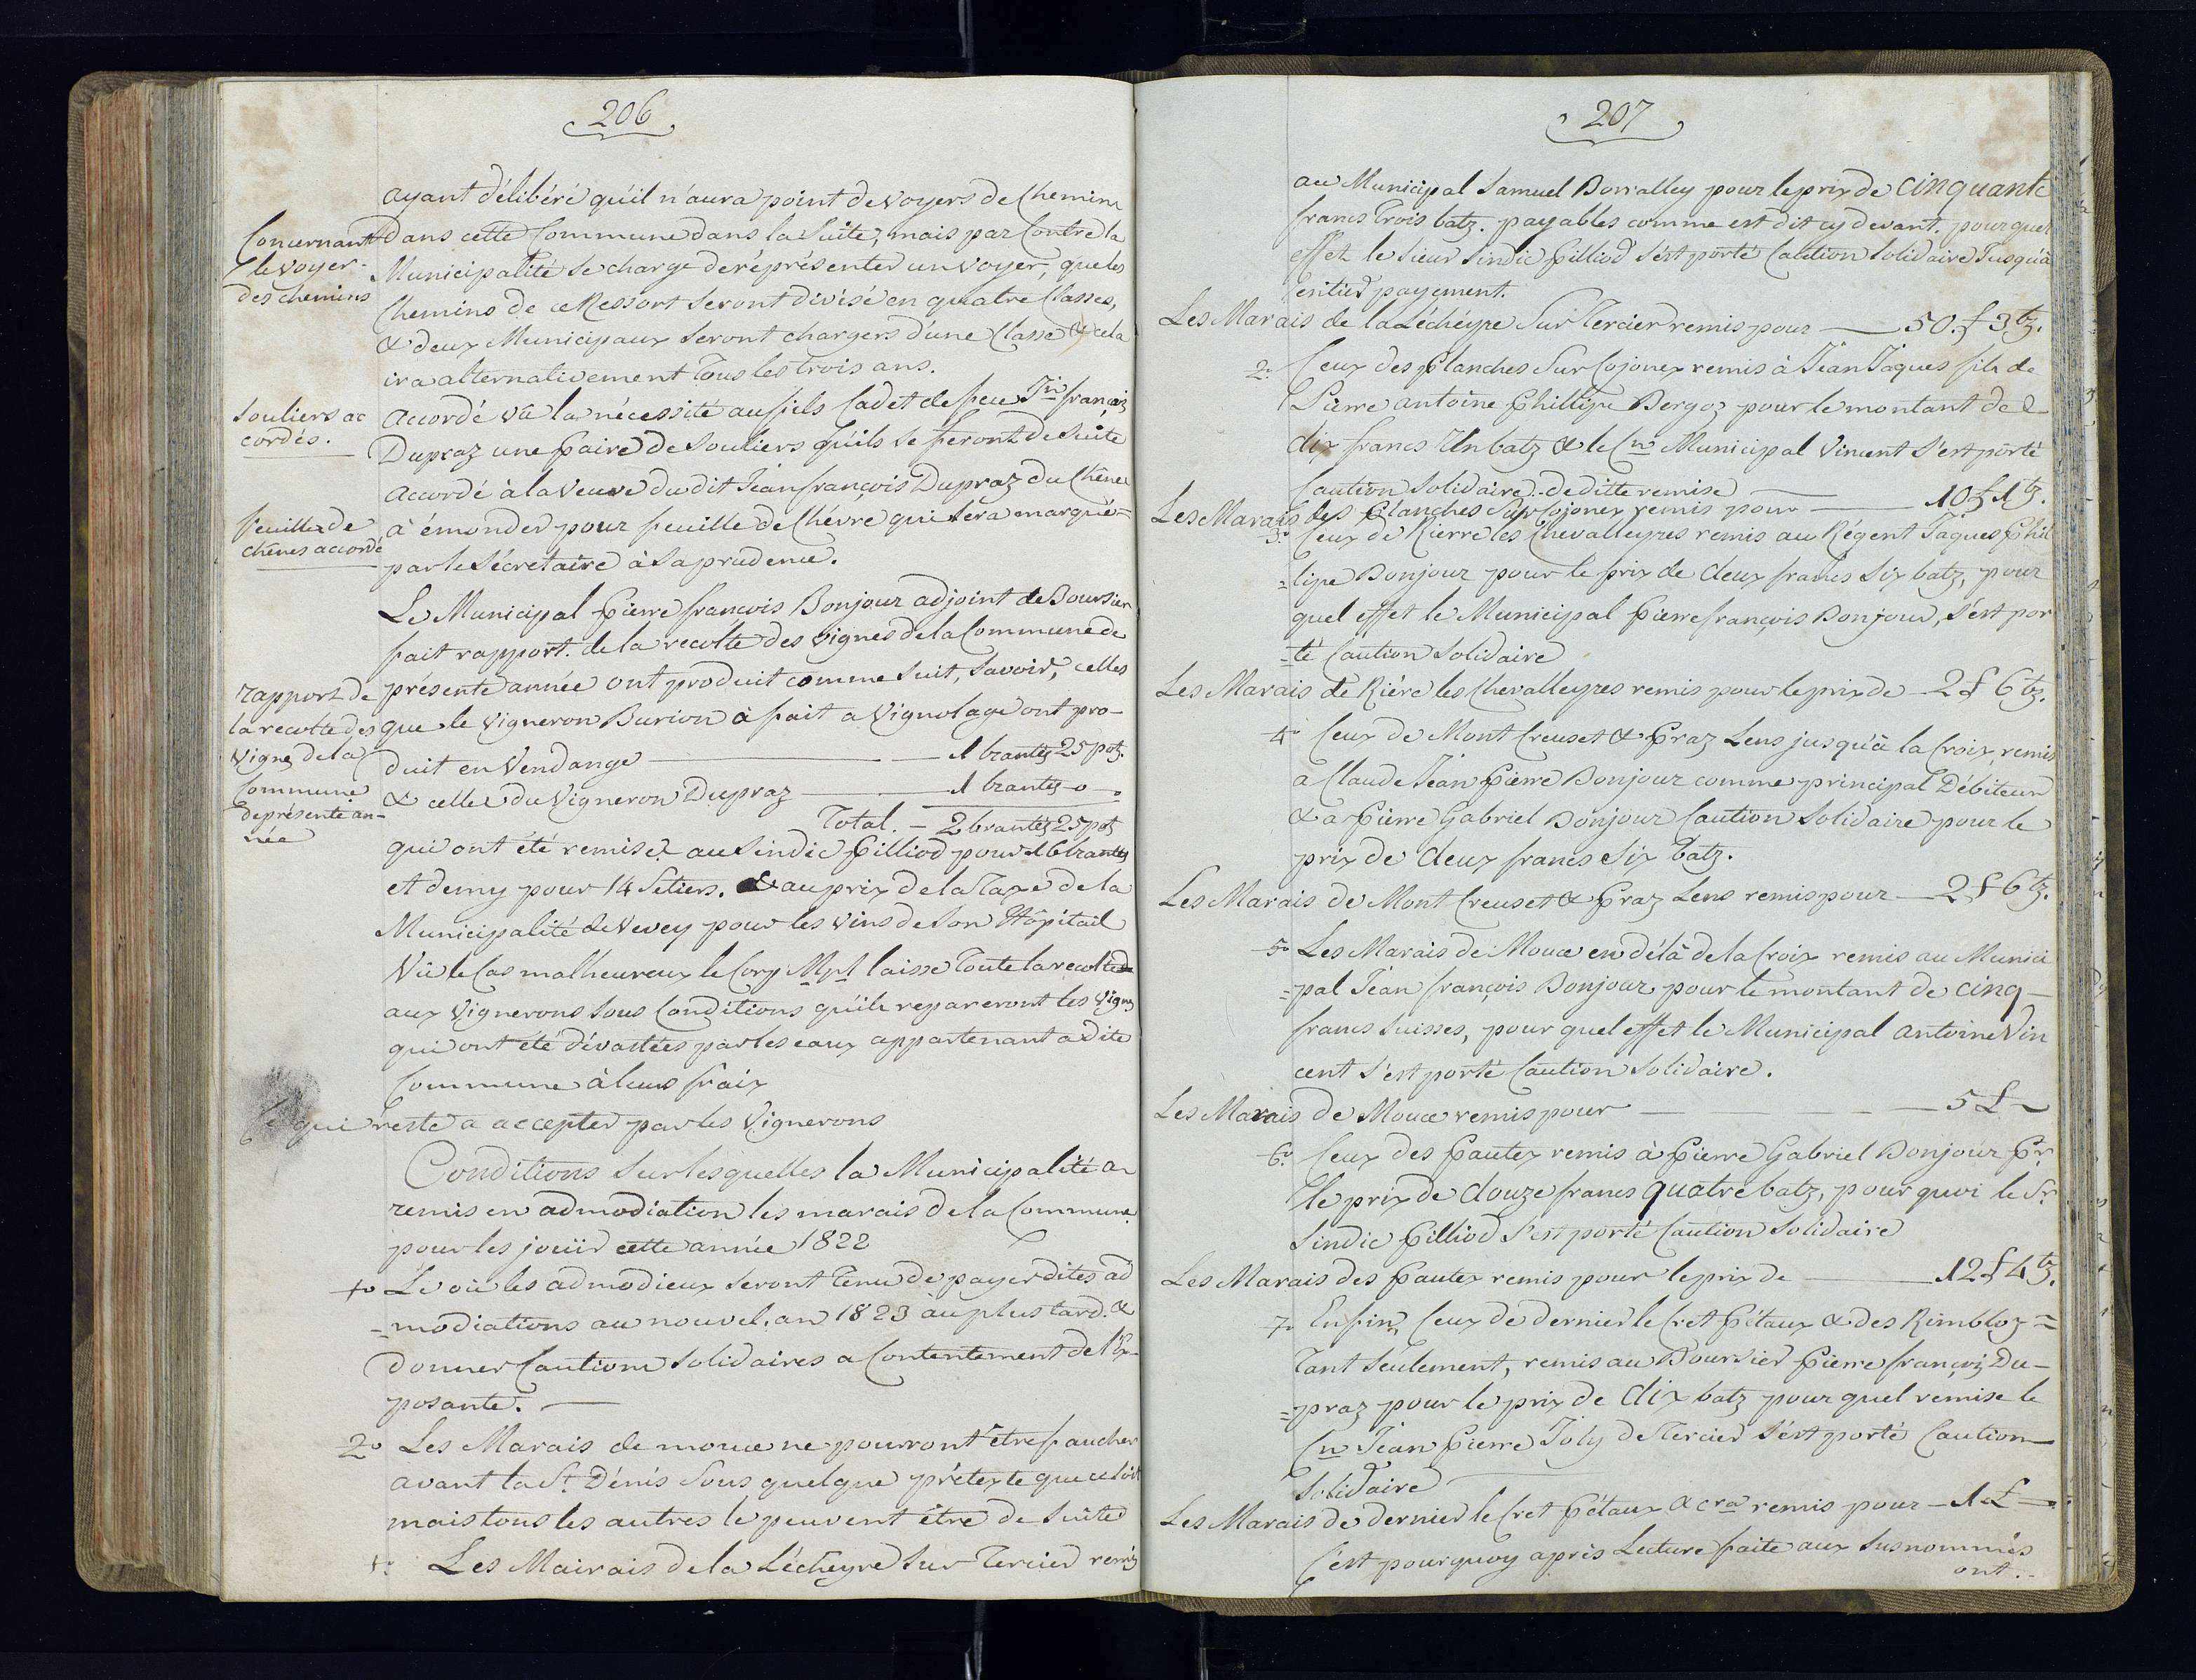 206
ayant délibéré qu'il n'aura point de voyers de Chemins
Concernant
le voyer
des chemins
dans cette Commune dans la Suite, mais par Contre la
Municipalité se charge de réprésenter un voyer, que les
Chemins de ce Ressort seront divisé en quatre Classes,
& deux Municipaux seront chargers d'une Classe & céla
ira alternativement tous les trois ans.
Souliers ac
cordés.
accordé vû la nécessité au fils Cadet de feu Jn françois
Dupraz une paire de Souliers qu'ils se feront de Suite
accordé à la Veuve du dit Jéan françois Dupraz du Chêne
feuilles de
chênes accordé
à émonder pour feuille de Chévre qui sera marqué=
par le Sécretaire à Sa prudence.
Le Municipal Pierre françois Bonjour adjoint de Boursier
fait rapport. de la recolte des vignes de la Commune de
rapport de
la recolte des
Vignes de la
Commune
de présente an-
née
présente année ont produit comme suit, Savoir, celles
que le Vigneron Burion à fait a Vignolage ont pro-
duit en Vendange — 1 brantes 25 potz.
& celles du Vigneron Dupraz — 1 brantes - 0 -
Total. - 2 brantes 25 potz
qui ont été remises au Sindic Pilliod pour 16 brantes
et demy pour 14 Setiers. & au prix de la Taxe de la
Municipalité de Vevey pour les vins de Son Hôpitail
Vû le Cas malheureux le Corp Mpl laisse toute la recolte
aux Vignerons sous Conditions qu'ils repareront les Vignes
qui ont été dévastées par les eaux appartenant a dite
Commune à leurs fraix
Ce qui reste a accepter par les Vignerons
Conditions Sur lesquelles la Municipalité a
remis en admodiation les marais de la Commune
pour les jouïr cette année 1822
1o Le où les admodieux seront tenu de payer dites ad
=modiations au nouvel. an 1823 au plus tard. &
donner Cautions Solidaires a Contentement de l'Ex-
posante. —
2o Les Marais de mouce ne pourront être faucher
avant la St. Dénis Sous quelque prétexte que ce soit
mais tous les autres le peuvent être de Suite
1o. Les Mairais de la Léchéyre Sur Tercier remis
207
au Municipal Samuel Borralley pour le prix de cinquante
francs trois batz. payables comme est dit cy devant. pour quel
effet le sieur Sindic Pilliod s'ést porté Caution Solidaire Jusqu'à
entier payement.
Les Marais de la Léchéyre Sur Tercier remis pour — 50. f 3. bz.
2o. Ceux des Planches Sur Cojonex remis à Jéan Jaques fils de
Pierre antoine Phillipe Bergoz pour le montant de
dix francs Un batz & le Cn Municipal Vincent s'est porté
Caution Solidaire. de ditte remise
Les Marais des Planches Sur Cojonex remis pour — 10 f 1 bz.
3o. Ceux de Rierre les Chevalleyres remis au Régent Jaques Phil
=lipe Bonjour pour le prix de deux francs Six batz, pour
quel effet le Municipal Pierre françois Bonjour, s'ést por
=té Caution Solidaire
Les Marais de Riére les Chevalleyres remis pour le prix de — 2 f 6 bz.
4o Ceux de Mont Creuset & Praz Lens jusqu'à la Croix, remis
à Claude Jéan Pierre Bonjour comme principal Débiteur
& a Pierre Gabriel Bonjour Caution Solidaire pour le
prix de deux francs Six batz.
Les Marais de Mont Creuset & Praz Lens remis pour — 2 f 6 bz.
5o Les Marais de Mouce en délà de la Croix remis au Munici
=pal Jéan françois Bonjour pour le montant de cinq —
francs Suisses, pour quel effet le Municipal antoine Vin
cent s'est porté Caution Solidaire.
Les Marais de Mouce remis pour — 5 £ ~
6o Ceux des Pautex remis à Pierre Gabriel Bonjour Pr
le prix de douze francs quatre batz, pour quoi le Sr
Sindic Pilliod s'est porté Caution Solidaire
Les Marais des Pautex remis pour le prix de — 12 f 4 bz.
7o Enfin, Ceux de dernier le Cret Pétaux & des Rimbloz =
tant Seulement, remis au Boursier Pierre françois Du-
=praz pour le prix de dix batz pour quel remise le
Cn Jéan Pierre Joly de Tercier s'ést porté Caution
Solidaire
Les Marais de dernier le Cret Pétaux & cra remis pour — 1 £ —
C'est pourquoy après Lecture faite aux Susnommés
ont.-